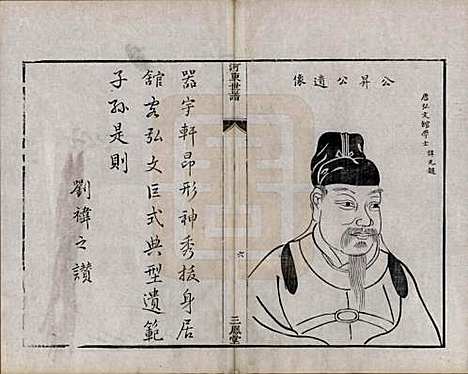 公昇公遺像
唐弘文館學士諱元超
河東世譜
六
三鳳堂
器宇軒昂形神秀拔身居
館客弘文巨式典型遺範
子孫是則
劉禕之讚